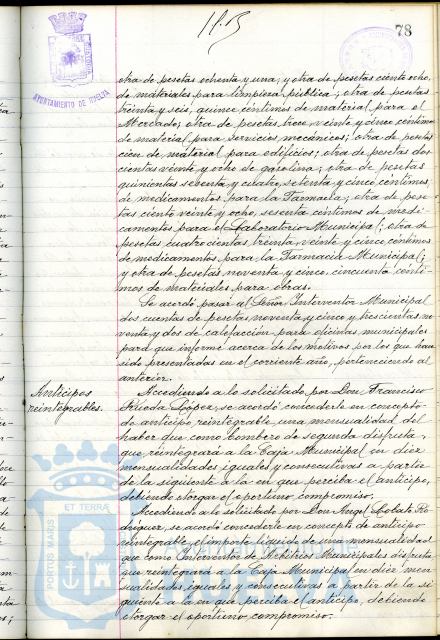 78
AYUNTAMIENTO DE HUELVA
otra de pesetas ochenta y una; y otra de pesetas ciento ocho,
de materiales para limpieza pública; otra de pesetas
treinta y seis, quince céntimos de material para el
Mercado; otra de pesetas trece, veinte y cinco céntimos
de material para servicios mecánicos; otra de pesetas
cien de material para edificios; otra de pesetas dos
cientas veinte y ocho de gasolina; otra de pesetas
quinientas sesenta y cuatro, setenta y cinco céntimos,
de medicamentos para la Farmacia; otra de pese
tas ciento veinte y ocho, sesenta céntimos de medi
camentos para el Laboratorio Municipal; otra de
pesetas cuatrocientas treinta, veinte y cinco céntimos
de medicamentos para la Farmacia Municipal;
y otra de pesetas noventa y cinco, cincuenta cénti
mos de materiales para obras.
Se acordó pasar al Señor Interventor Municipal
dos cuentas de pesetas noventa y cinco y trescientas no
venta y dos de calefacción para oficinas municipales
para que informe acerca de los motivos por los que han
sido presentadas en el corriente año, perteneciendo al
anterior.
Anticipos
reintegrables.
Accediendo a lo solicitado por Don Francisco
Rueda López, se acordó concederle en concepto
de anticipo, reintegrable, una mensualidad del
haber que como Bombero de segunda disfruta,
que reintegrará a la Caja Municipal en diez
mensualidades iguales y consecutivas a partir
de la siguiente a la en que perciba el anticipo,
debiendo otorgar el oportuno compromiso.
Accediendo a lo solicitado por Don Angel Lobato Ro
dríguez, se acordó concederle en concepto de anticipo
reintegrable, el importe líquido de una mensualidad
que como Interventor de Arbitrios Municipales disfruta
que reintegrará a la Caja Municipal en diez men
sualidades, iguales y consecutivas a partir de la si
guiente a la en que perciba el anticipo, debiendo
otorgar el oportuno compromiso.
PORTUS MARIS ET TERRÆ